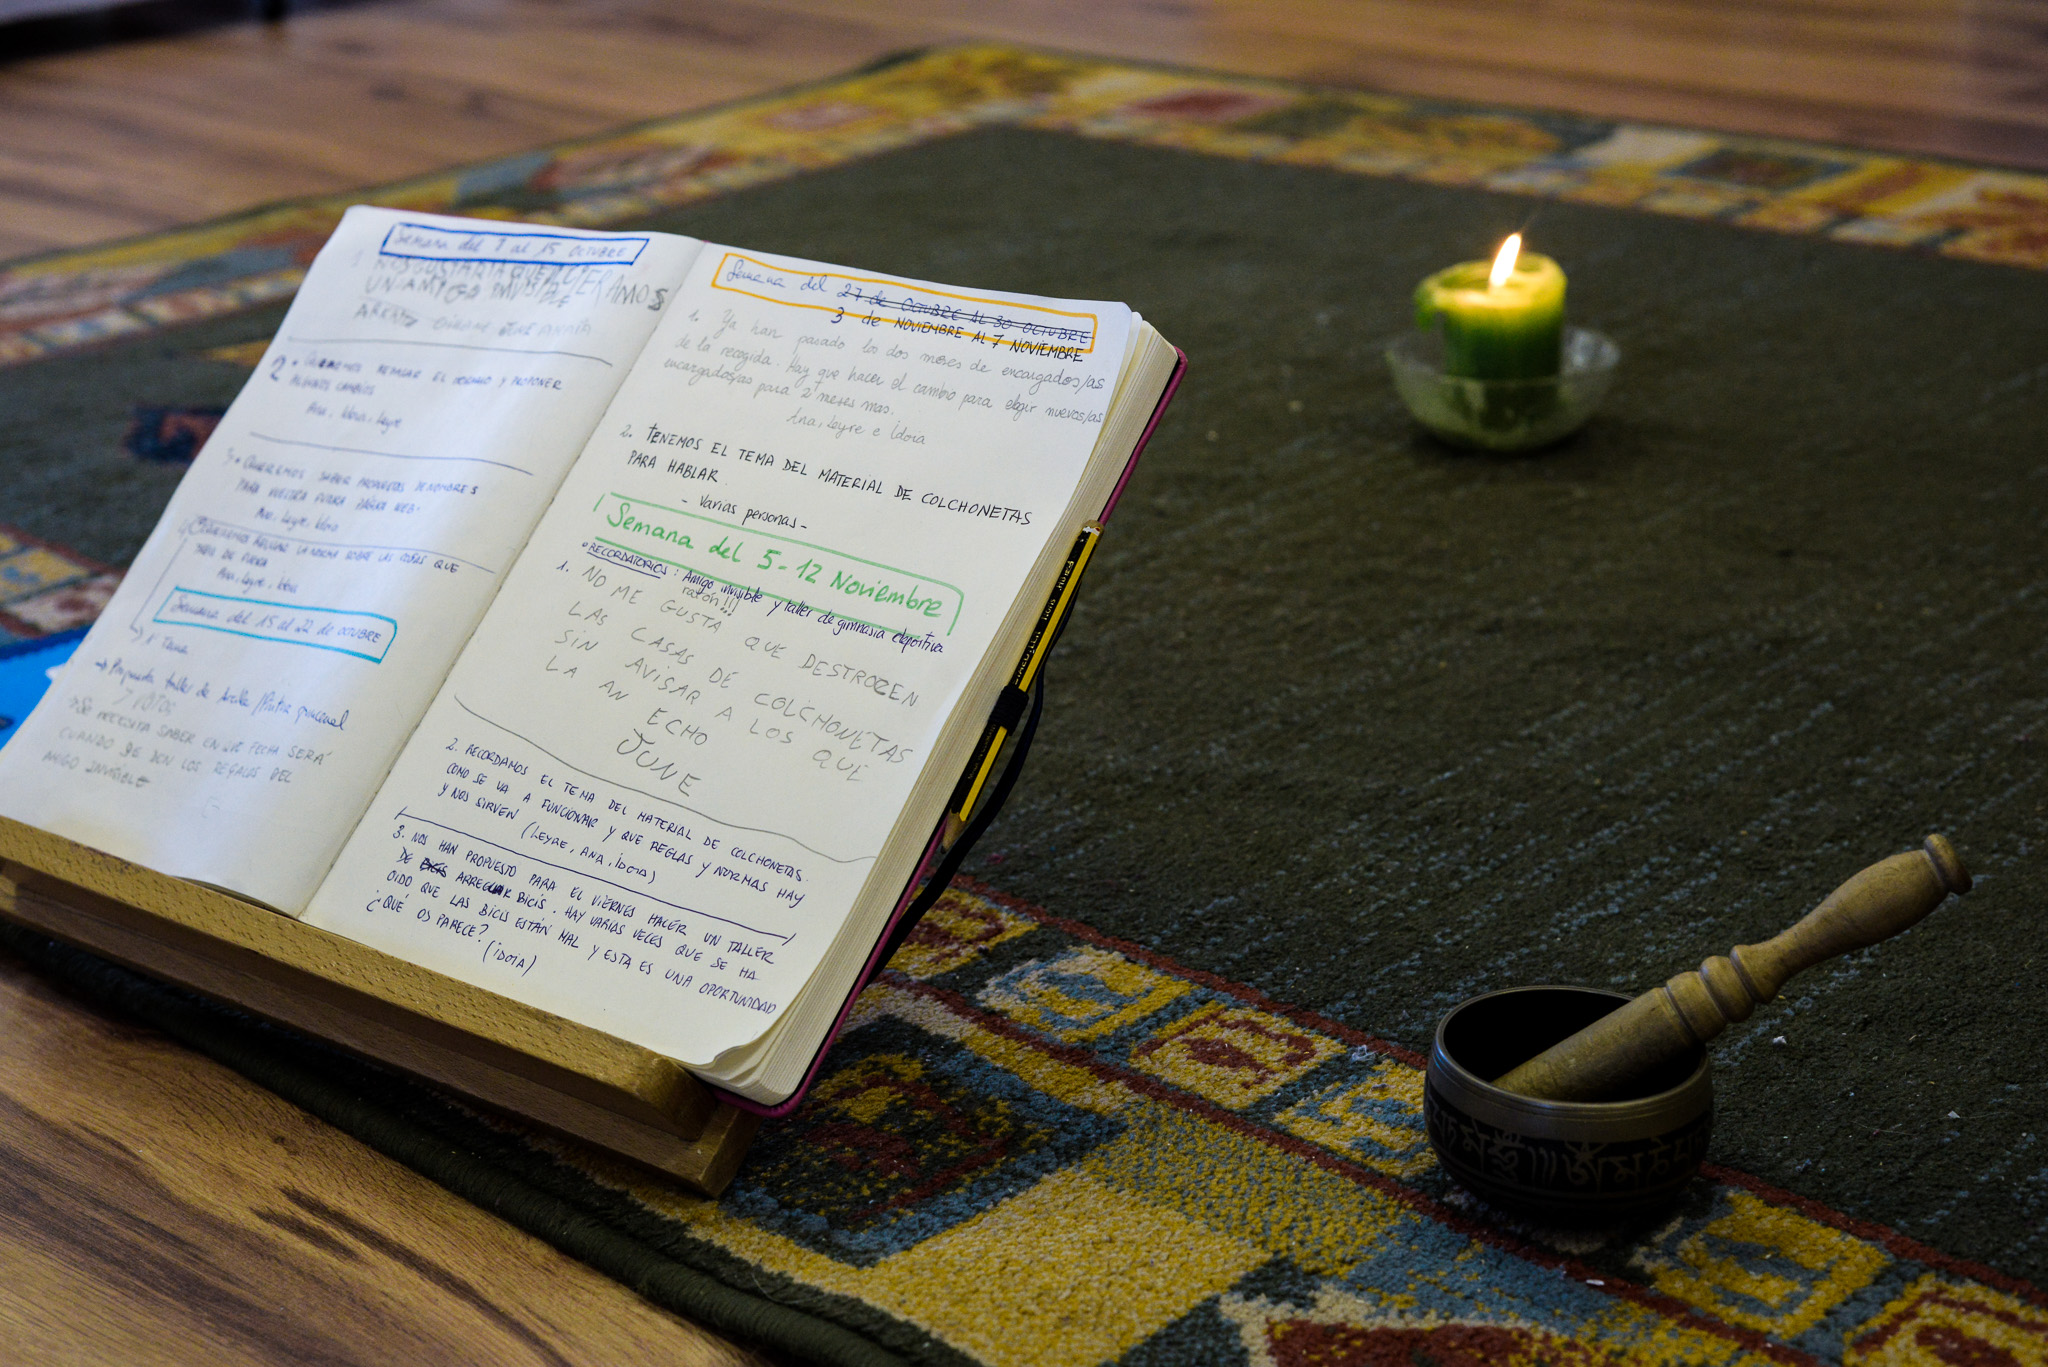 Semana del 8 al 15 OCTUBRE
NOS GUSTARIA QUE HICIERAMOS
UN AMIGO INVISIBLE
JUNE
2. REVISAR EL HORARIO Y PROPONER
ALGUNOS CAMBIOS
Ana, Idoia, Leyre
3. QUEREMOS SABER PROPUESTAS DE NOMBRES
PARA NUESTRA FUTURA PÁGINA WEB.
Ana, Leyre, Idoia
4. QUEREMOS LA NORMA SOBRE LAS COSAS QUE
DE FUERA
Ana, Leyre, Idoia
Semana del 15 al 22 de OCTUBRE
1º Tema
→ Propuesta taller de
SE NECESITA SABER EN QUE FECHA SERÁ
CUANDO SE DEN LOS REGALOS DEL
AMIGO INVISIBLE
Semana del 27 de OCTUBRE AL 30 OCTUBRE
3 de NOVIEMBRE AL 7 NOVIEMBRE
1. Ya han pasado los dos meses de encargados/as
de la recogida. Hay que hacer el cambio para elegir nuevos/as
encargados/as para 2 meses mas.
Ana, Leyre e Idoia
2. TENEMOS EL TEMA DEL MATERIAL DE COLCHONETAS
PARA HABLAR
- Varias personas -
Semana del 5-12 Noviembre
• RECORDATORIOS: Amigo invisible y taller de gimnasia deportiva
ratón!!!
1. NO ME GUSTA QUE DESTROZEN
LAS CASAS DE COLCHONETAS
SIN AVISAR A LOS QUE
LA AN ECHO
JUNE
2. RECORDAMOS EL TEMA DEL MATERIAL DE COLCHONETAS.
COMO SE VA A FUNCIONAR Y QUE REGLAS Y NORMAS HAY
Y NOS SIRVEN (LEYRE, ANA, IDOIA)
3. NOS HAN PROPUESTO PARA EL VIERNES HACER UN TALLER
DE BICIS ARREGLAR BICIS. HAY VARIAS VECES QUE SE HA
OIDO QUE LAS BICIS ESTÁN MAL Y ESTA ES UNA OPORTUNIDAD
¿QUÉ OS PARECE?
(IDOIA)